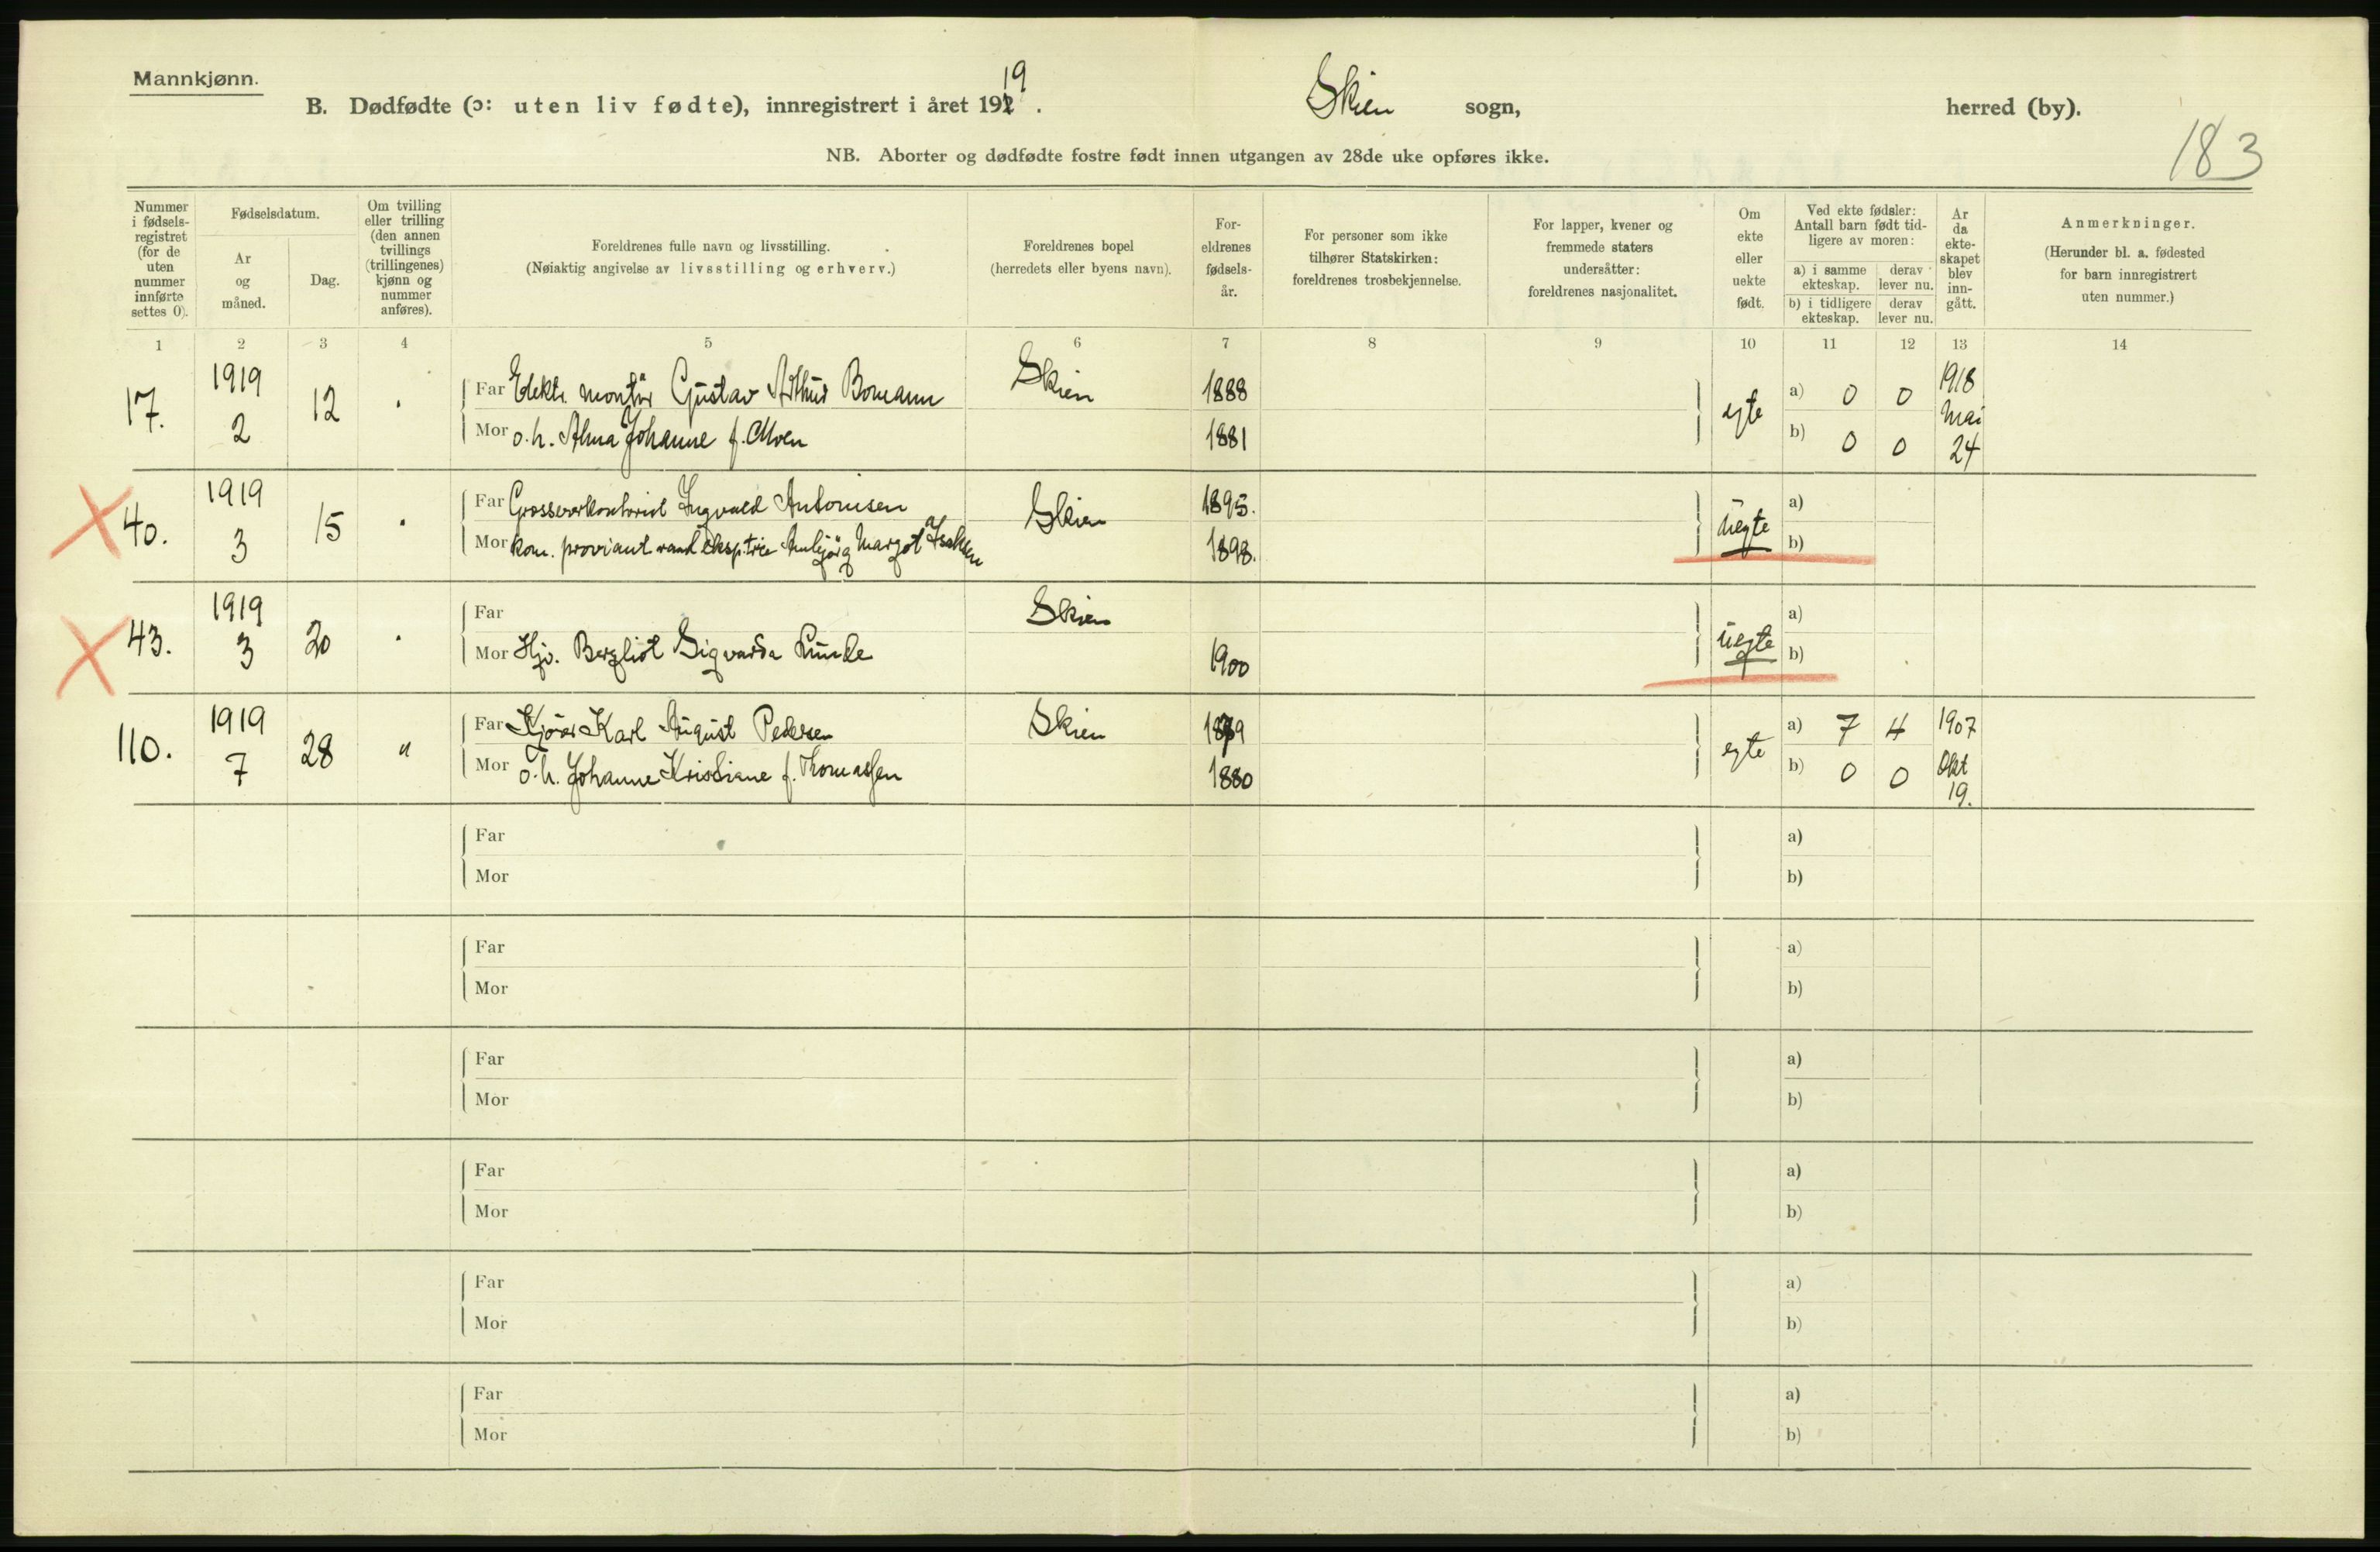 Mannkjønn.
B. Dødfødte (ɔ: uten liv fødte), innregistrert i året 1919.
Skien sogn,
herred (by).
183
NB. Aborter og dødfødte fostre født innen utgangen av 28de uke opføres ikke.
Nummer i fødsels-registret (for de uten nummer innførte settes 0).
Fødselsdatum.
Ar og måned.
Dag.
Om tvilling eller trilling (den annen tvillings (trillingenes) kjønn og nummer anføres).
Foreldrenes fulle navn og livsstilling.
(Nøiaktig angivelse av livsstilling og erhverv.)
Foreldrenes bopel
(herredets eller byens navn).
For-eldrenes fødsels-år.
For personer som ikke tilhører Statskirken: foreldrenes trosbekjennelse.
For lapper, kvener og fremmede staters undersåtter: foreldrenes nasjonalitet.
Om ekte eller uekte født.
Ved ekte fødsler: Antall barn født tid-ligere av moren:
a) i samme ekteskap.
derav lever nu.
b) i tidligere ekteskap.
derav lever nu.
Ar da ekte-skapet blev inn-gått.
Anmerkninger.
(Herunder bl. a. fødested for barn innregistrert uten nummer.)
1 2 3 4 5 6 7 8 9 10 11 12 13 14
17. 1919 2 12
Far Elektr. montör Gustav Arthur Bomann Skien 1888
Mor o. h. Alma Johanne f. Moen 1881
egte a) 0 0 b) 0 0 1918 Mai 24
40. 1919 3 15
Far Ingvald Antonisen Skien 1895.
Mor kom. proviant Margot Isaksen 1898.
üegte a) b)
43. 1919 3 20
Far Skien
Mor Hjv. Bergliot Sigvarda Lunde 1900
üegte a) b)
110. 1919 7 28 "
Far Karl August Pedersen Skien 1879
Mor o. h. Johanne Kristiane f. Thomassen 1880
egte a) 7 4 b) 0 0 1907 Okt 19.
Far a)
Mor b)
Far a)
Mor b)
Far a)
Mor b)
Far a)
Mor b)
Far a)
Mor b)
Far a)
Mor b)